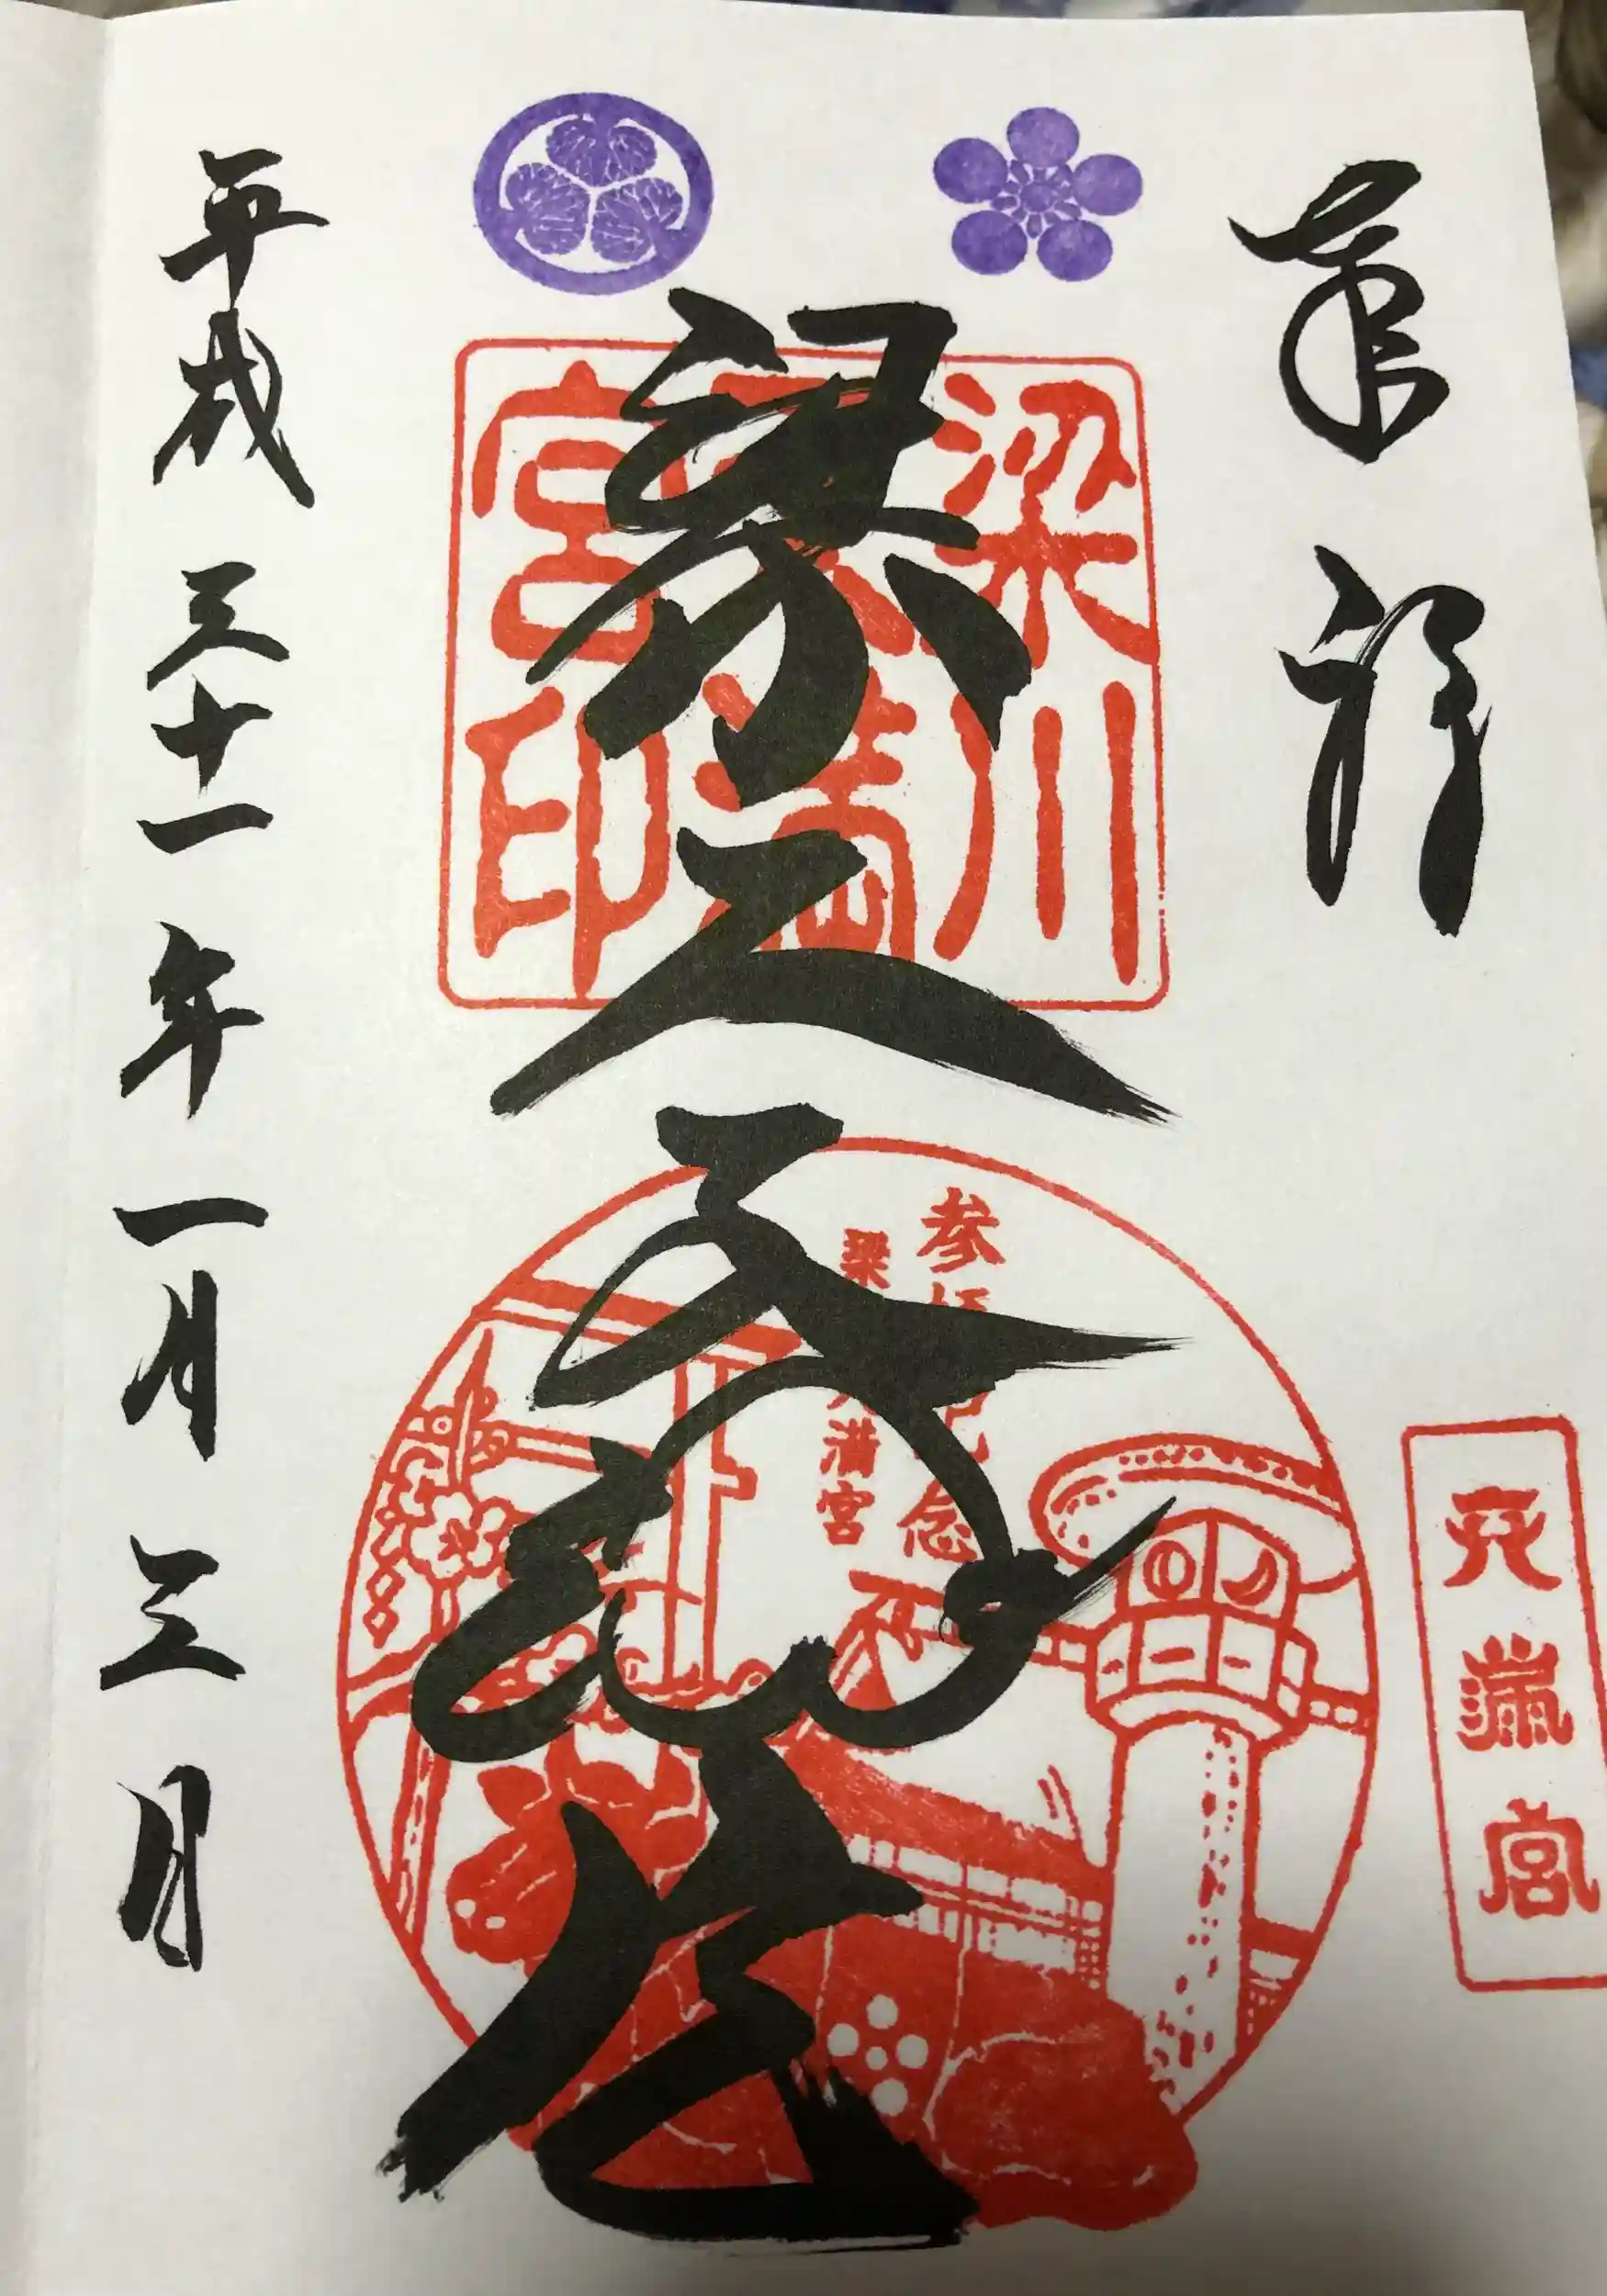 奉拝
梁川天満宮印
参拝記念
梁川天満宮
天満宮
平成三十一年一月三日